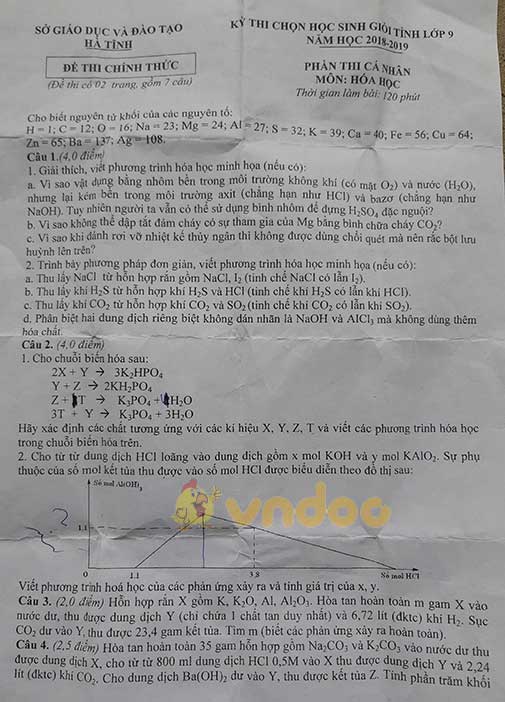 SỞ GIÁO DỤC VÀ ĐÀO TẠO
HÀ TĨNH
ĐỀ THI CHÍNH THỨC
(Đề thi có 02 trang, gồm 7 câu)
KỲ THI CHỌN HỌC SINH GIỎI TỈNH LỚP 9
NĂM HỌC 2018-2019
PHẦN THI CÁ NHÂN
MÔN: HÓA HỌC
Thời gian làm bài: 120 phút
Cho biết nguyên tử khối của các nguyên tố:
H = 1; C = 12; O = 16; Na = 23; Mg = 24; Al = 27; S = 32; K = 39; Ca = 40; Fe = 56; Cu = 64;
Zn = 65; Ba = 137; Ag = 108.
Câu 1.(4,0 điểm)
1. Giải thích, viết phương trình hóa học minh họa (nếu có):
a. Vì sao vật dụng bằng nhôm bền trong môi trường không khí (có mặt O₂) và nước (H₂O),
nhưng lại kém bền trong môi trường axit (chẳng hạn như HCl) và bazơ (chẳng hạn như
NaOH). Tuy nhiên người ta vẫn có thể sử dụng bình nhôm để đựng H₂SO₄ đặc nguội?
b. Vì sao không thể dập tắt đám cháy có sự tham gia của Mg bằng bình chữa cháy CO₂?
c. Vì sao khi đánh rơi vỡ nhiệt kế thủy ngân thì không được dùng chổi quét mà nên rắc bột lưu
huỳnh lên trên?
2. Trình bày phương pháp đơn giản, viết phương trình hóa học minh họa (nếu có):
a. Thu lấy NaCl từ hỗn hợp rắn gồm NaCl, I₂ (tinh chế NaCl có lẫn I₂).
b. Thu lấy khí H₂S từ hỗn hợp khí H₂S và HCl (tinh chế khí H₂S có lẫn khí HCl).
c. Thu lấy khí CO₂ từ hỗn hợp khí CO₂ và SO₂ (tinh chế khí CO₂ có lẫn khí SO₂).
d. Phân biệt hai dung dịch riêng biệt không dán nhãn là NaOH và AlCl₃ mà không dùng thêm
hóa chất.
Câu 2. (4,0 điểm)
1. Cho chuỗi biến hóa sau:
2X + Y → 3K₂HPO₄
Y + Z → 2KH₂PO₄
Z + T → K₃PO₄ + H₂O
3T + Y → K₃PO₄ + 3H₂O
Hãy xác định các chất tương ứng với các kí hiệu X, Y, Z, T và viết các phương trình hóa học
trong chuỗi biến hóa trên.
2. Cho từ từ dung dịch HCl loãng vào dung dịch gồm x mol KOH và y mol KAlO₂. Sự phụ
thuộc của số mol kết tủa thu được vào số mol HCl được biểu diễn theo đồ thị sau:
Số mol Al(OH)₃
vndoc
1.1
0 1.1 3.8 Số mol HCl
Viết phương trình hoá học của các phản ứng xảy ra và tính giá trị của x, y.
Câu 3. (2,0 điểm) Hỗn hợp rắn X gồm K, K₂O, Al, Al₂O₃. Hòa tan hoàn toàn m gam X vào
nước dư, thu được dung dịch Y (chỉ chứa 1 chất tan duy nhất) và 6,72 lít (đktc) khí H₂. Sục
CO₂ dư vào Y, thu được 23,4 gam kết tủa. Tìm m (biết các phản ứng xảy ra hoàn toàn).
Câu 4. (2,5 điểm) Hòa tan hoàn toàn 35 gam hỗn hợp gồm Na₂CO₃ và K₂CO₃ vào nước dư thu
được dung dịch X, cho từ từ 800 ml dung dịch HCl 0,5M vào X thu được dung dịch Y và 2,24
lít (đktc) khí CO₂. Cho dung dịch Ba(OH)₂ dư vào Y, thu được kết tủa Z. Tính phần trăm khối